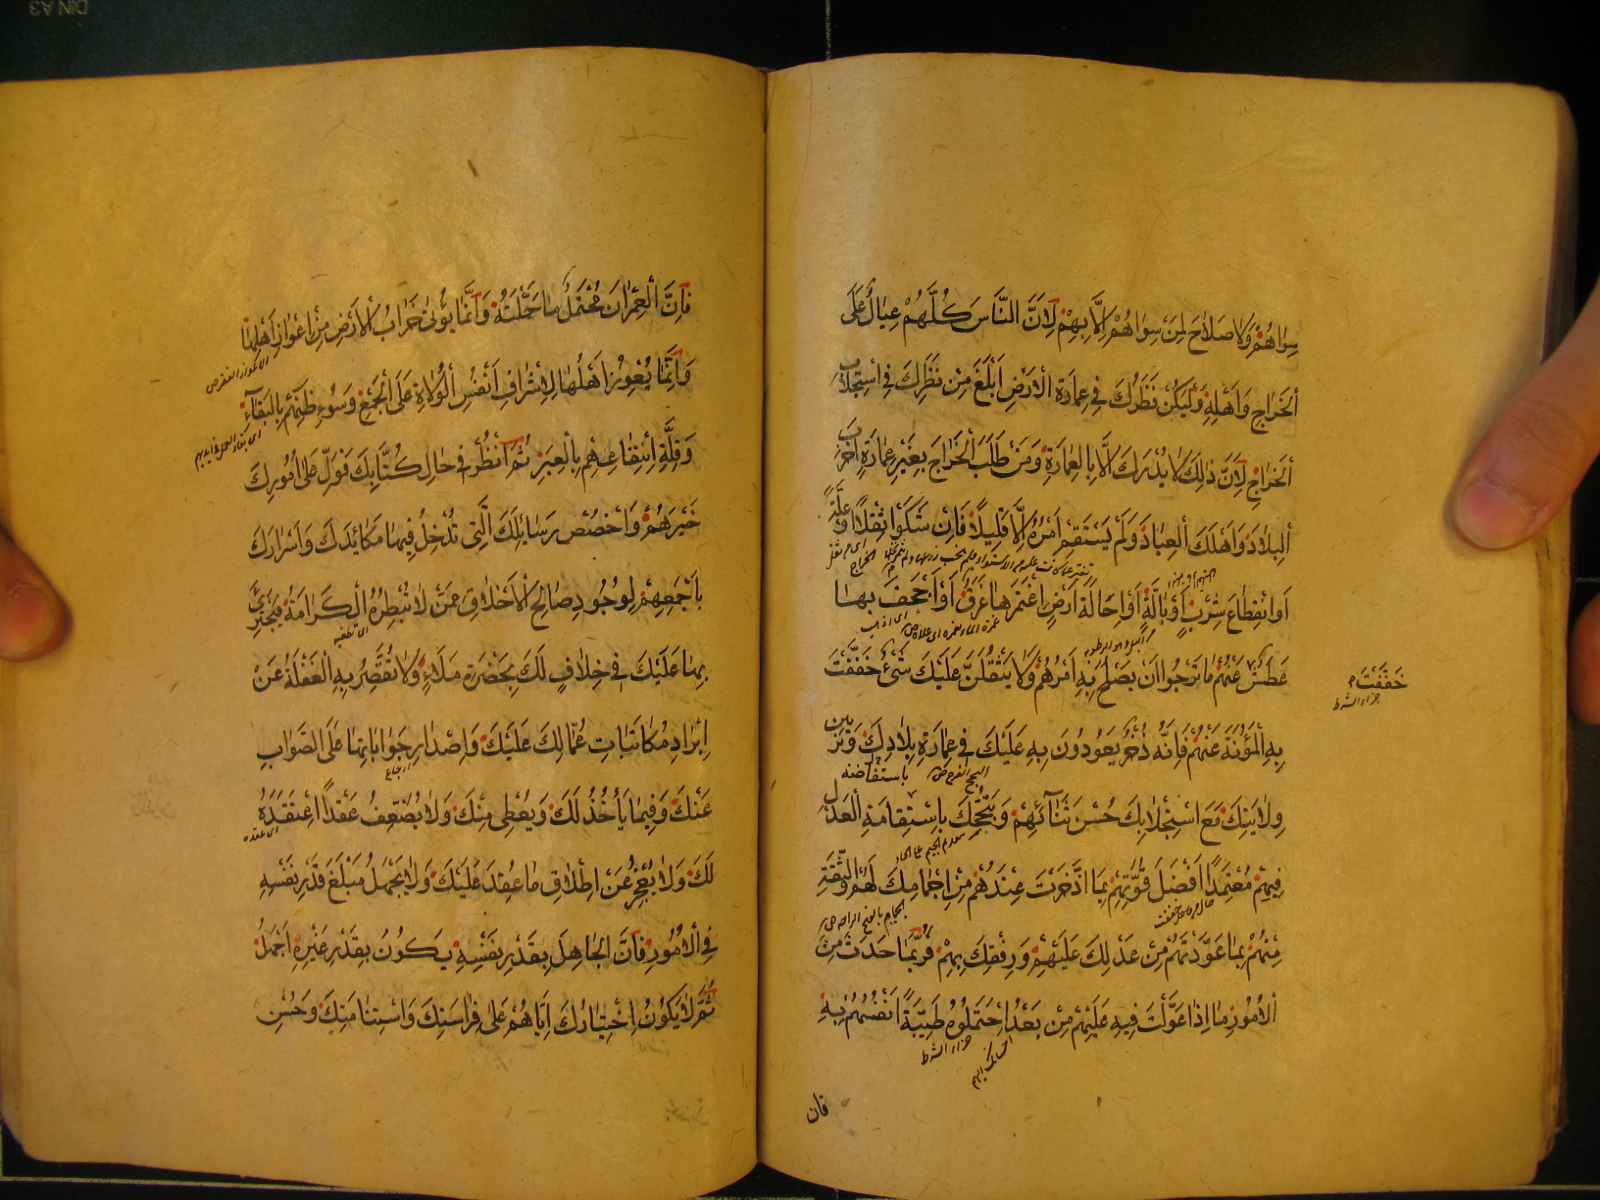 سِوَاهُمْ وَلَا صَلَاحَ لِمَنْ سِوَاهُمْ اِلَّا بِهِمْ لِاَنَّ النَّاسَ كُلَّهُمْ عِيَالٌ عَلَى
اَلْخَرَاجِ وَاَهْلِهِ وَلْيَكُنْ نَظَرُكَ فِي عِمَارَةِ الْاَرْضِ اَبْلَغَ مِنْ نَظَرِكَ فِي اسْتِجْلَابِ
اَلْخَرَاجِ لِاَنَّ ذٰلِكَ لَا يُدْرَكُ اِلَّا بِالْعِمَارَةِ وَمَنْ طَلَبَ الْخَرَاجَ بِغَيْرِ عِمَارَةٍ اَخْرَبَ
اَلْبِلَادَ وَاَهْلَكَ الْعِبَادَ وَلَمْ يَسْتَقِمْ اَمْرُهُ اِلَّا قَلِيلًا فَاِنْ شَكَوْا ثِقَلًا اَوْ عِلَّةً
اَوِ انْقِطَاعَ شِرْبٍ اَوْ بَالَّةٍ اَوْ اِحَالَةَ اَرْضٍ اغْتَمَرَهَا غَرَقٌ اَوْ اَجْحَفَ بِهَا
عَطَشٌ عَنْهُمْ مَا تَرْجُوا اَنْ يَصْلُحَ بِهِ اَمْرُهُمْ وَلَا يَثْقُلَنَّ عَلَيْكَ شَيْءٌ خَفَّفْتَ
خَفَّفْتَ
جزاء الشرط
بِهِ الْمَؤُنَةَ عَنْهُمْ فَاِنَّهُ ذُخْرٌ يَعُودُونَ بِهِ عَلَيْكَ فِي عِمَارَةِ بِلَادِكَ وَتَزْيِينِ
وِلَايَتِكَ مَعَ اسْتِجْلَابِكَ حُسْنَ ثَنَائِهِمْ وَتَبَجُّحِكَ بِاسْتِفَاضَةِ الْعَدْلِ
فِيهِمْ مُعْتَمِدًا اَفْضَلَ قُوَّتِهِمْ بِمَا ادَّخَرْتَ عِنْدَهُمْ مِنْ اِجْمَامِكَ لَهُمْ وَالثِّقَةِ
مِنْهُمْ بِمَا عَوَّدْتَهُمْ مِنْ عَدْلِكَ عَلَيْهِمْ وَرِفْقِكَ بِهِمْ فَرُبَّمَا حَدَثَ مِنَ
الْاُمُورِ مَا اِذَا عَوَّلْتَ فِيهِ عَلَيْهِمْ مِنْ بَعْدُ احْتَمَلُوهُ طَيِّبَةً اَنْفُسُهُمْ بِهِ
جزاء الشرط
فان
فَاِنَّ الْعُمْرَانَ مُحْتَمِلٌ مَا حَمَّلْتَهُ وَاِنَّمَا يُؤْتٰى خَرَابُ الْاَرْضِ مِنْ اِعْوَازِ اَهْلِهَا
وَاِنَّمَا يُعْوِزُ اَهْلُهَا لِاِشْرَافِ اَنْفُسِ الْوُلَاةِ عَلَى الْجَمْعِ وَسُوءِ ظَنِّهِمْ بِالْبَقَاءِ
وَقِلَّةِ اِنْتِفَاعِهِمْ بِالْعِبَرِ ثُمَّ انْظُرْ فِي حَالِ كُتَّابِكَ فَوَلِّ عَلٰى اُمُورِكَ
خَيْرَهُمْ وَاخْصُصْ رَسَائِلَكَ الَّتِي تُدْخِلُ فِيهَا مَكَائِدَكَ وَاَسْرَارَكَ
بِاَجْمَعِهِمْ لِوُجُودِ صَالِحِ الْاَخْلَاقِ مِمَّنْ لَا تُبْطِرُهُ الْكَرَامَةُ فَيَجْتَرِئَ
اى تطغيه
بِهَا عَلَيْكَ فِي خِلَافٍ لَكَ بِحَضْرَةِ مَلَاءٍ وَلَا تُقَصِّرُ بِهِ الْغَفْلَةُ عَنْ
اِيرَادِ مُكَاتَبَاتِ عُمَّالِكَ عَلَيْكَ وَاِصْدَارِ جَوَابَاتِهَا عَلَى الصَّوَابِ
ارجاع
عَنْكَ وَفِيمَا يَأْخُذُ لَكَ وَيُعْطِي مِنْكَ وَلَا يُضْعِفُ عَقْدًا اعْتَقَدَهُ
اى عقده
لَكَ وَلَا يُعْجِزُ عَنْ اِطْلَاقِ مَا عُقِدَ عَلَيْكَ وَلَا يَجْهَلُ مَبْلَغَ قَدْرِ نَفْسِهِ
فِي الْاُمُورِ فَاِنَّ الْجَاهِلَ بِقَدْرِ نَفْسِهِ يَكُونُ بِقَدْرِ غَيْرِهِ اَجْهَلَ
ثُمَّ لَا يَكُونُ اخْتِيَارُكَ اِيَّاهُمْ عَلٰى فِرَاسَتِكَ وَاسْتِنَامَتِكَ وَحُسْنِ